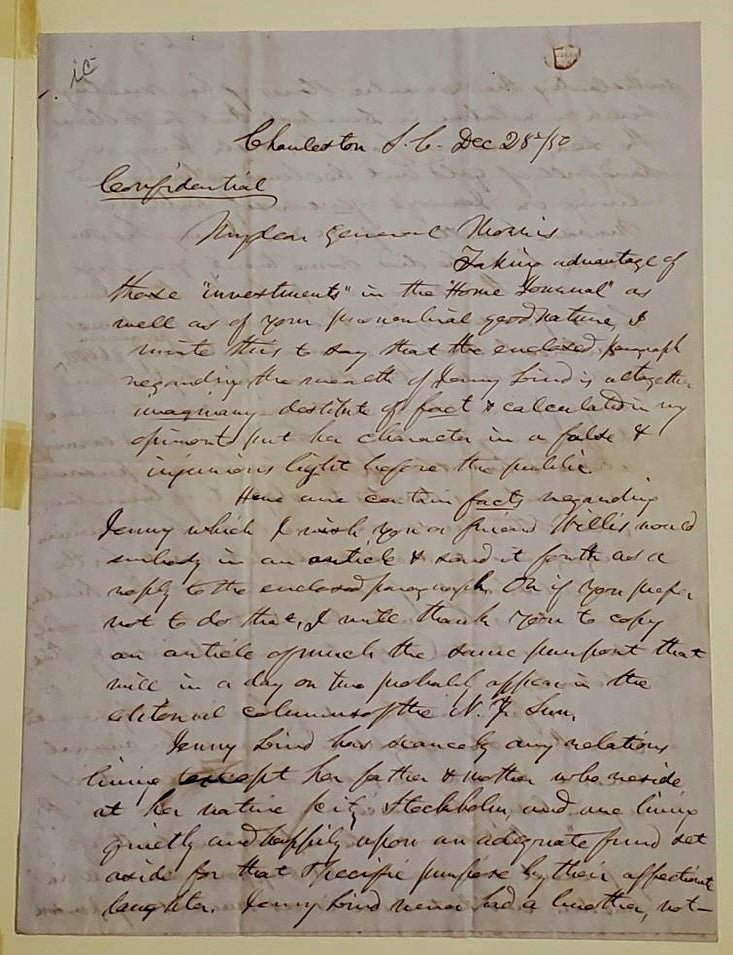 Charleston S.C. Dec 28th/50
Confidential
My dear General Morris
Taking advantage of
those "investments" in the "Home Journal" as
well as of your proverbial good nature, I
write this to say that the enclosed paragraph
regarding the wealth of Jenny Lind is altogether
imaginary, destitute of fact & calculated in my
opinion to put her character in a false &
injurious light before the public.
Here are certain facts regarding
Jenny which I wish you or friend Willis would
embody in an article & send it forth as a
reply to the enclosed paragraph. Or if you prefer
not to do that, I will thank you to copy
an article of much the same purport that
will in a day or two probably appear in the
editorial columns of the N.Y. Sun.
Jenny Lind has scarcely any relations
living except her father & mother who reside
at her native city Stockholm, and are living
quietly and happily upon an adequate fund set
aside for that specific purpose by their affectionate
daughter. Jenny Lind never had a brother, not-